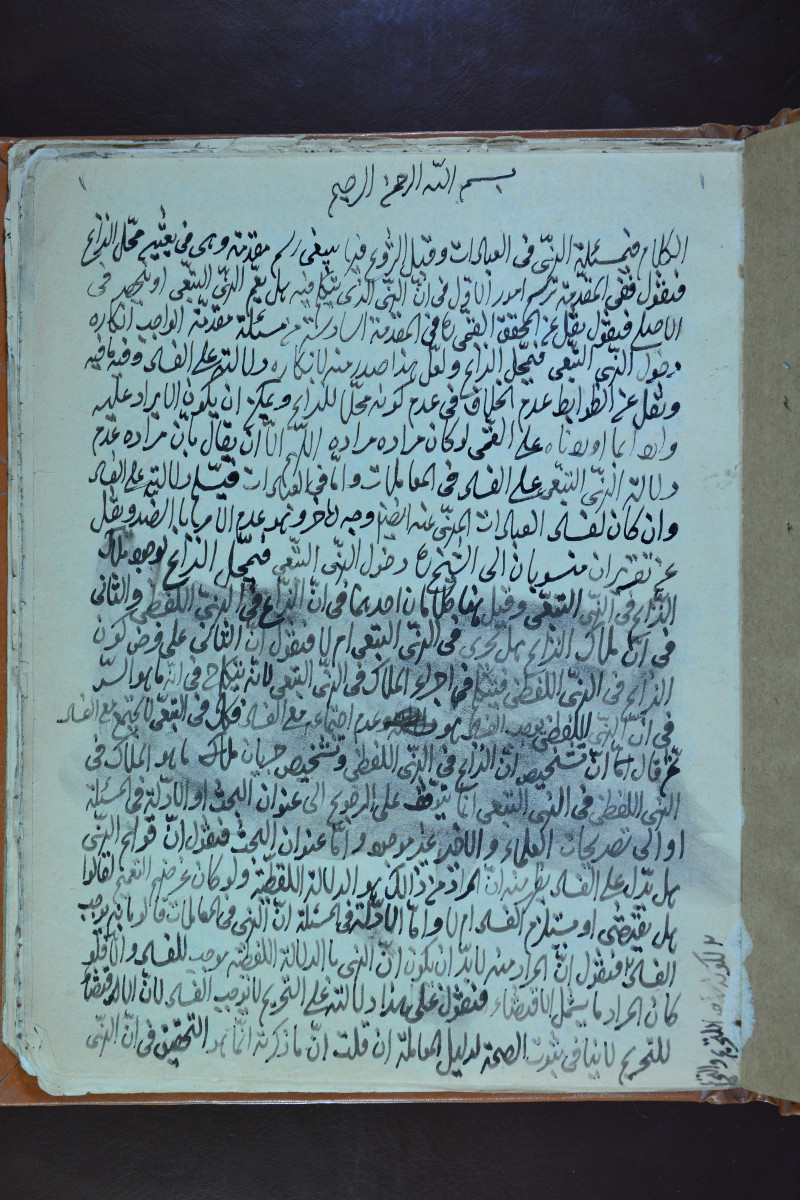 بسم الله الرحمن الرحيم
الكلام في مسئلة النهى فى العبادات وقبل الشروع فيها ينبغى رسم مقدمة وهى فى تعيين محل النزاع
فنقول ففى المقدمة ترسم امور الاول فى ان النهى الذى يتكلم فيه هل يعم النهى التبعى او ينحصر فى
الاصلى فنقول نقل عن المحقق القمى ره فى المقدمة السادسة من مسئلة مقدمة الواجب انكاره
دخول النهى التبعى فى محل النزاع ولعل هذا صدر منه لانكاره دلالته على الفساد وفيه ما فيه
ونقل عن الضوابط عدم الخلاف فى عدم كونه محلا للنزاع ويمكن ان يكون الايراد عليه
على القمى لو كان مراده مراده اللهم الا ان يقال بان مراده عدم
دلالة النهى التبعى على الفساد فى المعاملات واما فى العبادات فيسلم دلالته على الفساد
وان كان لفساد العبادات المنهى عنه الضد وجه اخر وهو عدم الامر بالضد ونقل
عن تقريران منسوبان الى الشيخ ره دخول النهى التبعى فى محل النزاع لوجود ملاك
النزاع فى النهى التبعى وقيل هنا كلامان احدهما فى ان النزاع فى النهى اللفظى والثانى
فى ان ملاك النزاع هل يجرى فى النهى التبعى ام لا فنقول ان الثانى على فرض كون
النزاع فى النهى اللفظى فيتكلم فى اجراء الملاك فى النهى التبعى لانه يتكلم فى انه ما هو السر
فى ان النهى اللفظى يوجب الفساد هو عدم اجتماعه مع الفساد فكل فى التبعى لا يجتمع مع الفساد
ثم قال اما ان تشخيص ان النزاع فى النهى اللفظى وتشخيص جريان ملاك ما هو الملاك فى
النهى اللفظى فى النهى التبعى انما يتوقف على الرجوع الى عنوان البحث او الادلة فى المسئلة
او الى تصريحات العلماء والاخير غير موجود واما عنوان البحث فنقول ان قولهم النهى
هل يدل على الفساد يظهر منه ان المراد من ذلك هو الدلالة اللفظية ولو كان غرضهم التعميم لقالوا
هل يقتضى او مستلزم الفساد ام لا واما الادلة فى المسئلة ان النهى فى المعاملات قالوا بانه يوجب
الفساد فنقول ان المراد منه لابد ان يكون ان النهى بالدلالة اللفظية يوجب للفساد والا فلو
كان المراد ما يشمل الاقتضاء فنقول على هذا دلالته على التحريم لا توجب الفساد لان الاقتضاء
للتحريم لا ينافى ثبوت الصحة لدليل المعاملة ان قلت ان ما ذكرته انما هو التحقيق فى ان النهى